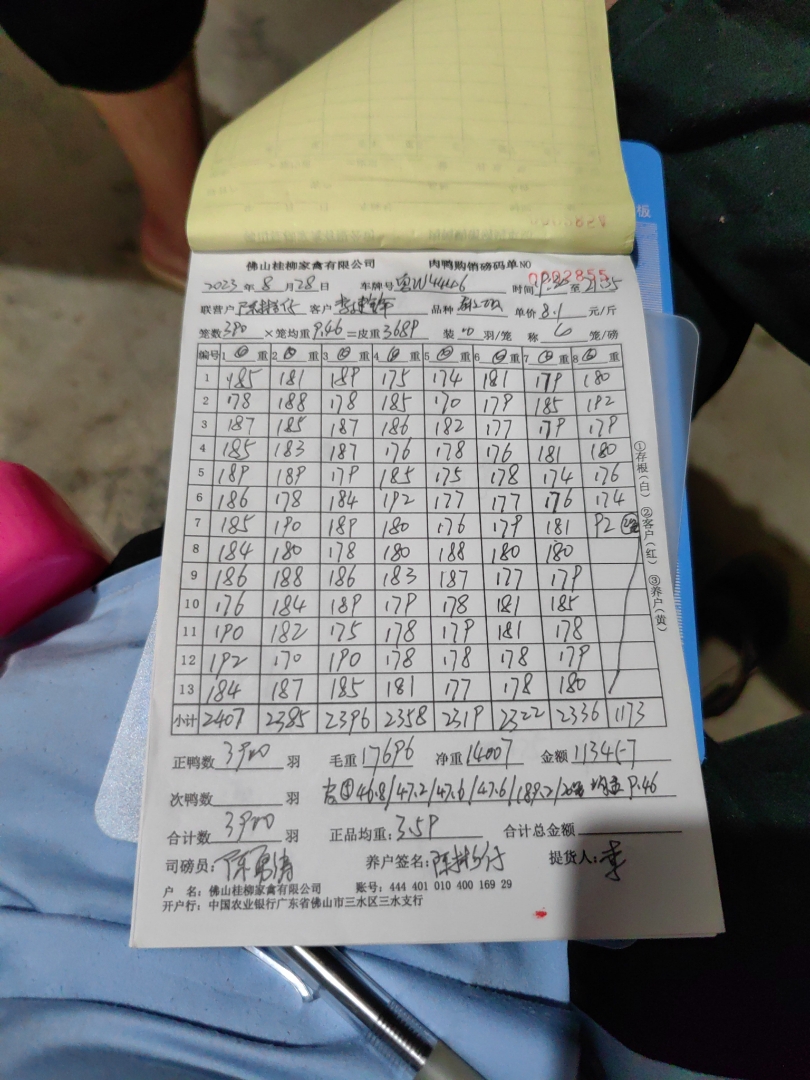 板
佛山桂柳家禽有限公司 肉鸭购销磅码单NO 0002855
2023年8月28日 车牌号 粤W44446 时间 19:30至21:35
联营户 客户 品种 单价8.1元/斤
笼数390×笼均重9.46=皮重3689 装10羽/笼 称6笼/磅
编号 1⑥重 2⑥重 3⑥重 4⑥重 5⑥重 6⑥重 7⑥重 8⑥重
1 185 181 189 175 174 181 179 180
2 178 188 178 185 170 179 185 192
3 187 185 187 186 182 177 179 179
4 185 183 187 176 178 176 181 180
5 189 189 179 185 175 178 174 176
6 186 178 184 192 177 177 176 174
7 185 190 189 180 176 179 181 92
8 184 180 178 180 188 180 180
9 186 188 186 183 187 177 179
10 176 184 189 179 178 181 185
11 190 182 175 178 179 181 178
12 192 170 190 178 178 178 179
13 184 187 185 181 177 178 180
小计 2407 2385 2396 2358 2319 2322 2336 1173
①存根(白) ②客户(红) ③养户(黄)
正鸭数3900羽 毛重17696 净重14007 金额113457
次鸭数 羽 46.8/47.2/47.6/47.6/189.2/20笼 均重9.46
合计数3900羽 正品均重:3.59 合计总金额
司磅员: 养户签名: 提货人:李
户 名:佛山桂柳家禽有限公司 账号:444 401 010 400 169 29
开户行:中国农业银行广东省佛山市三水区三水支行